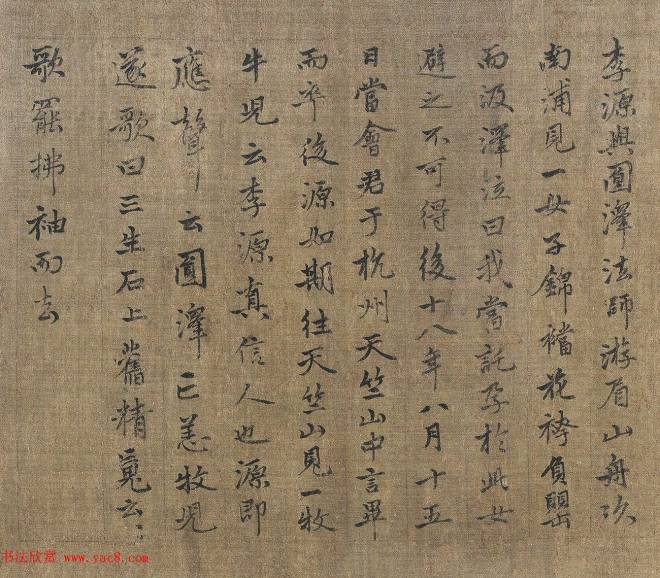 李源與圓澤法師游眉山舟次
南浦見一女子錦襠花袴負甖
而汲澤泣曰我當託孕於此女
避之不可得後十八年八月十五
日當會君于杭州天竺山中言畢
而卒後源如期往天竺山見一牧
牛児云李源真信人也源即
應聲云圓澤已恙牧児
遂歌曰三生石上舊精䰟云〻
歌罷拂袖而去
书法欣赏 www.yac8.com